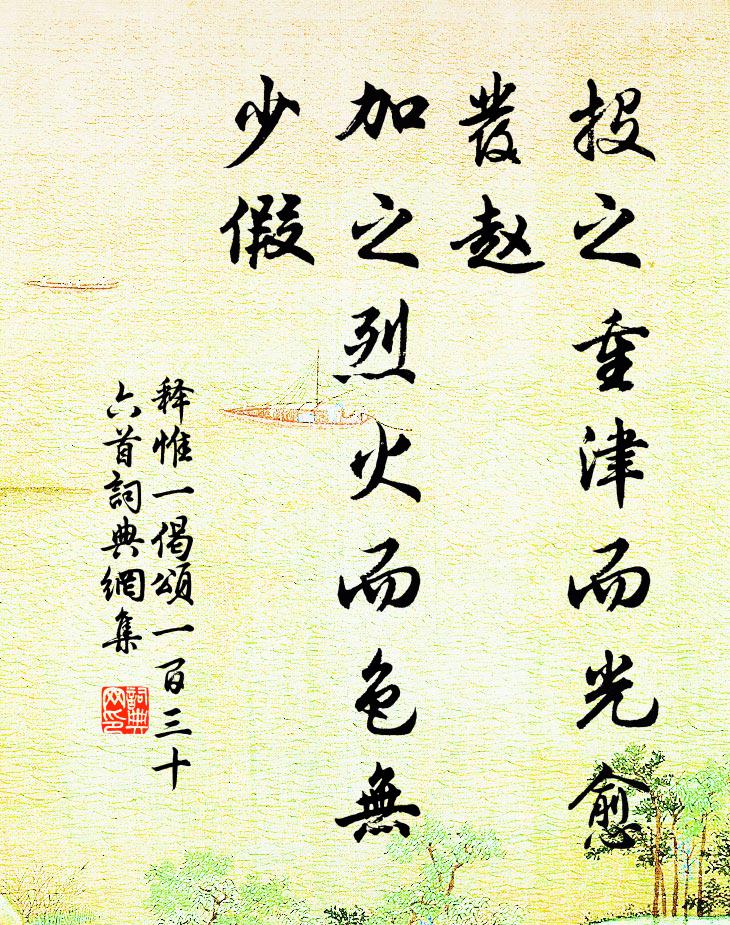 投之重津而光愈
發赵
加之烈火而色無
少假
释惟一偈頌一百三十
六首詞典網集
詞典
网印